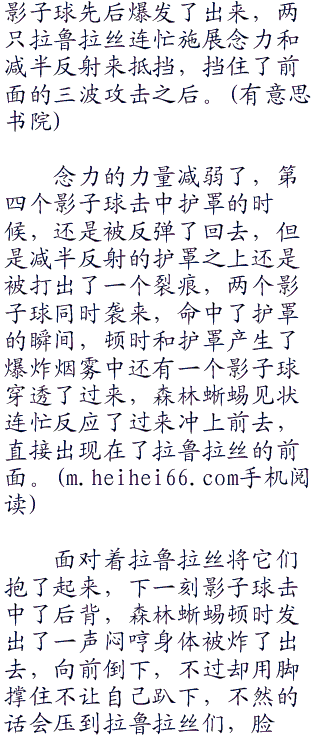 影子球先后爆发了出来，两
只拉鲁拉丝连忙施展念力和
减半反射来抵挡，挡住了前
面的三波攻击之后。(有意思
书院)
念力的力量减弱了，第
四个影子球击中护罩的时
候，还是被反弹了回去，但
是减半反射的护罩之上还是
被打出了一个裂痕，两个影
子球同时袭来，命中了护罩
的瞬间，顿时和护罩产生了
爆炸烟雾中还有一个影子球
穿透了过来，森林蜥蜴见状
连忙反应了过来冲上前去，
直接出现在了拉鲁拉丝的前
面。(m.heihei66.com手机阅
读)
面对着拉鲁拉丝将它们
抱了起来，下一刻影子球击
中了后背，森林蜥蜴顿时发
出了一声闷哼身体被炸了出
去，向前倒下，不过却用脚
撑住不让自己趴下，不然的
话会压到拉鲁拉丝们，脸